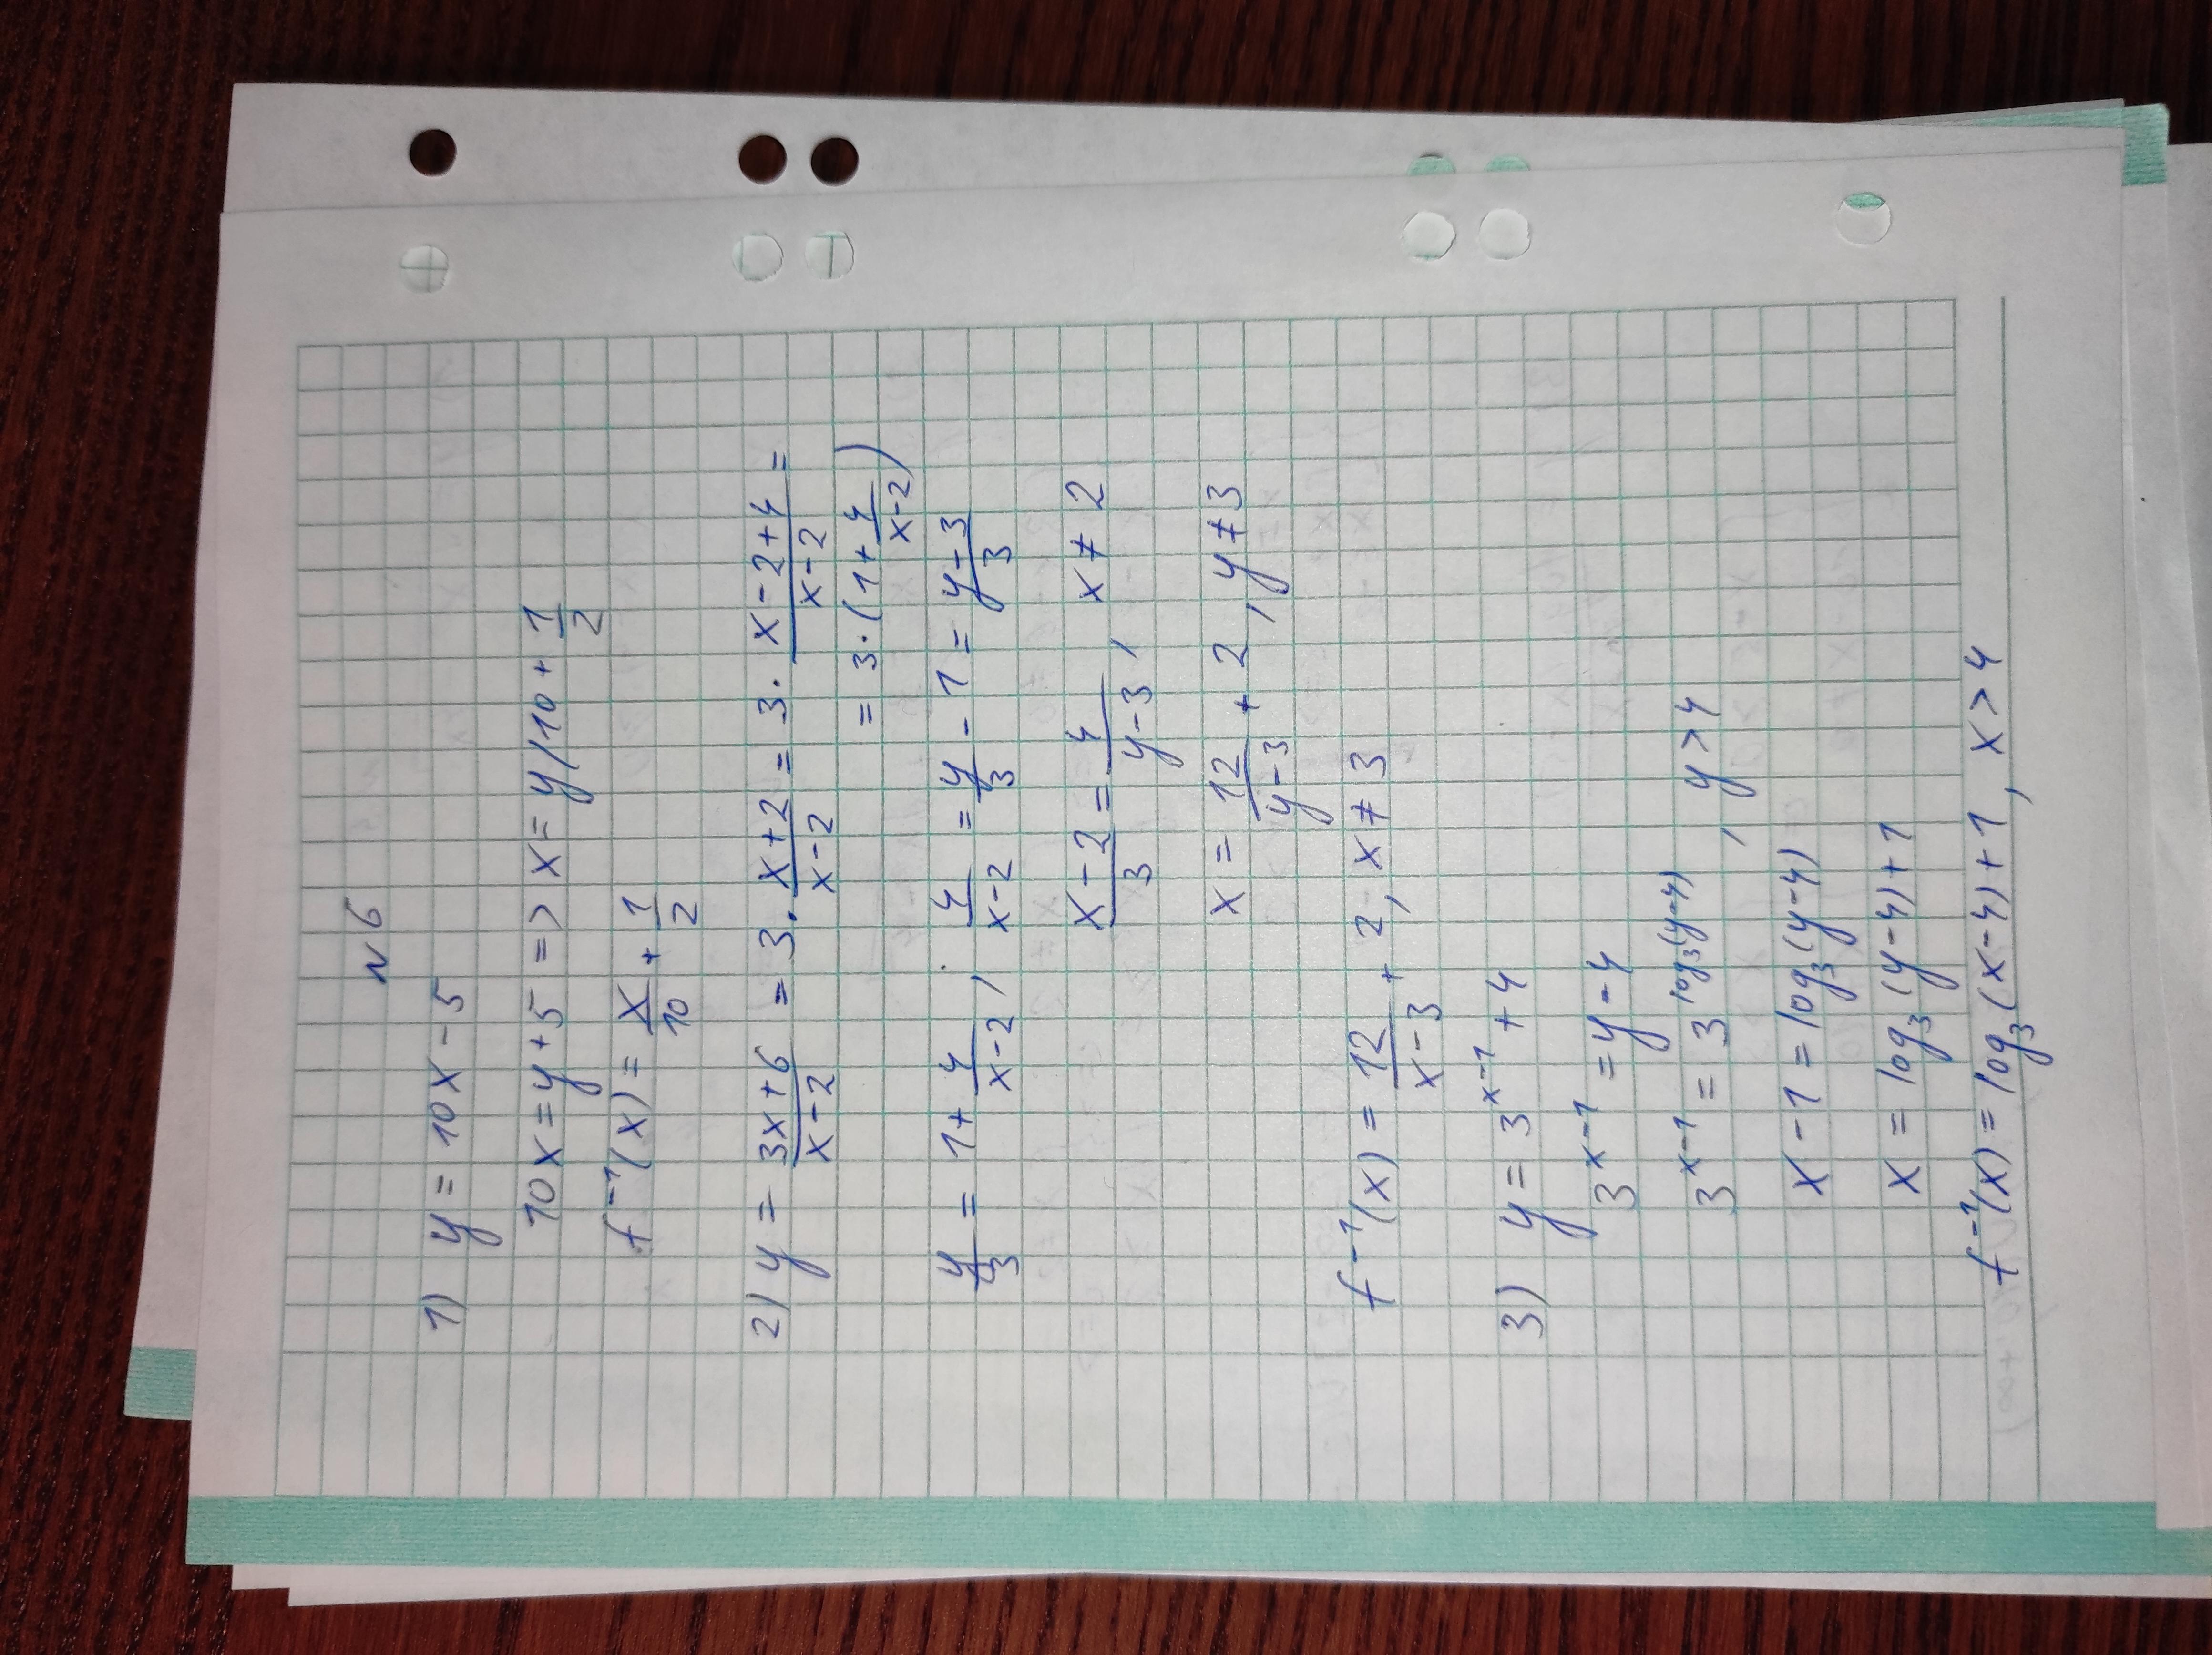 N6
1) y = 10x - 5
10x = y + 5 => x = y/10 + 1/2
f⁻¹(x) = x/10 + 1/2
2) y = (3x+6)/(x-2) = 3 · (x+2)/(x-2) = 3 · (x-2+4)/(x-2) =
= 3 · (1 + 4/(x-2))
y/3 = 1 + 4/(x-2) , 4/(x-2) = y/3 - 1 = (y-3)/3
(x-2)/3 = 4/(y-3) , x ≠ 2
x = 12/(y-3) + 2 , y ≠ 3
f⁻¹(x) = 12/(x-3) + 2, x ≠ 3
3) y = 3ˣ⁻¹ + 4
3ˣ⁻¹ = y - 4
3^(x-1) = 3^(log₃(y-4)) , y > 4
x - 1 = log₃(y-4)
x = log₃(y-4) + 1
f⁻¹(x) = log₃(x-4) + 1 , x > 4